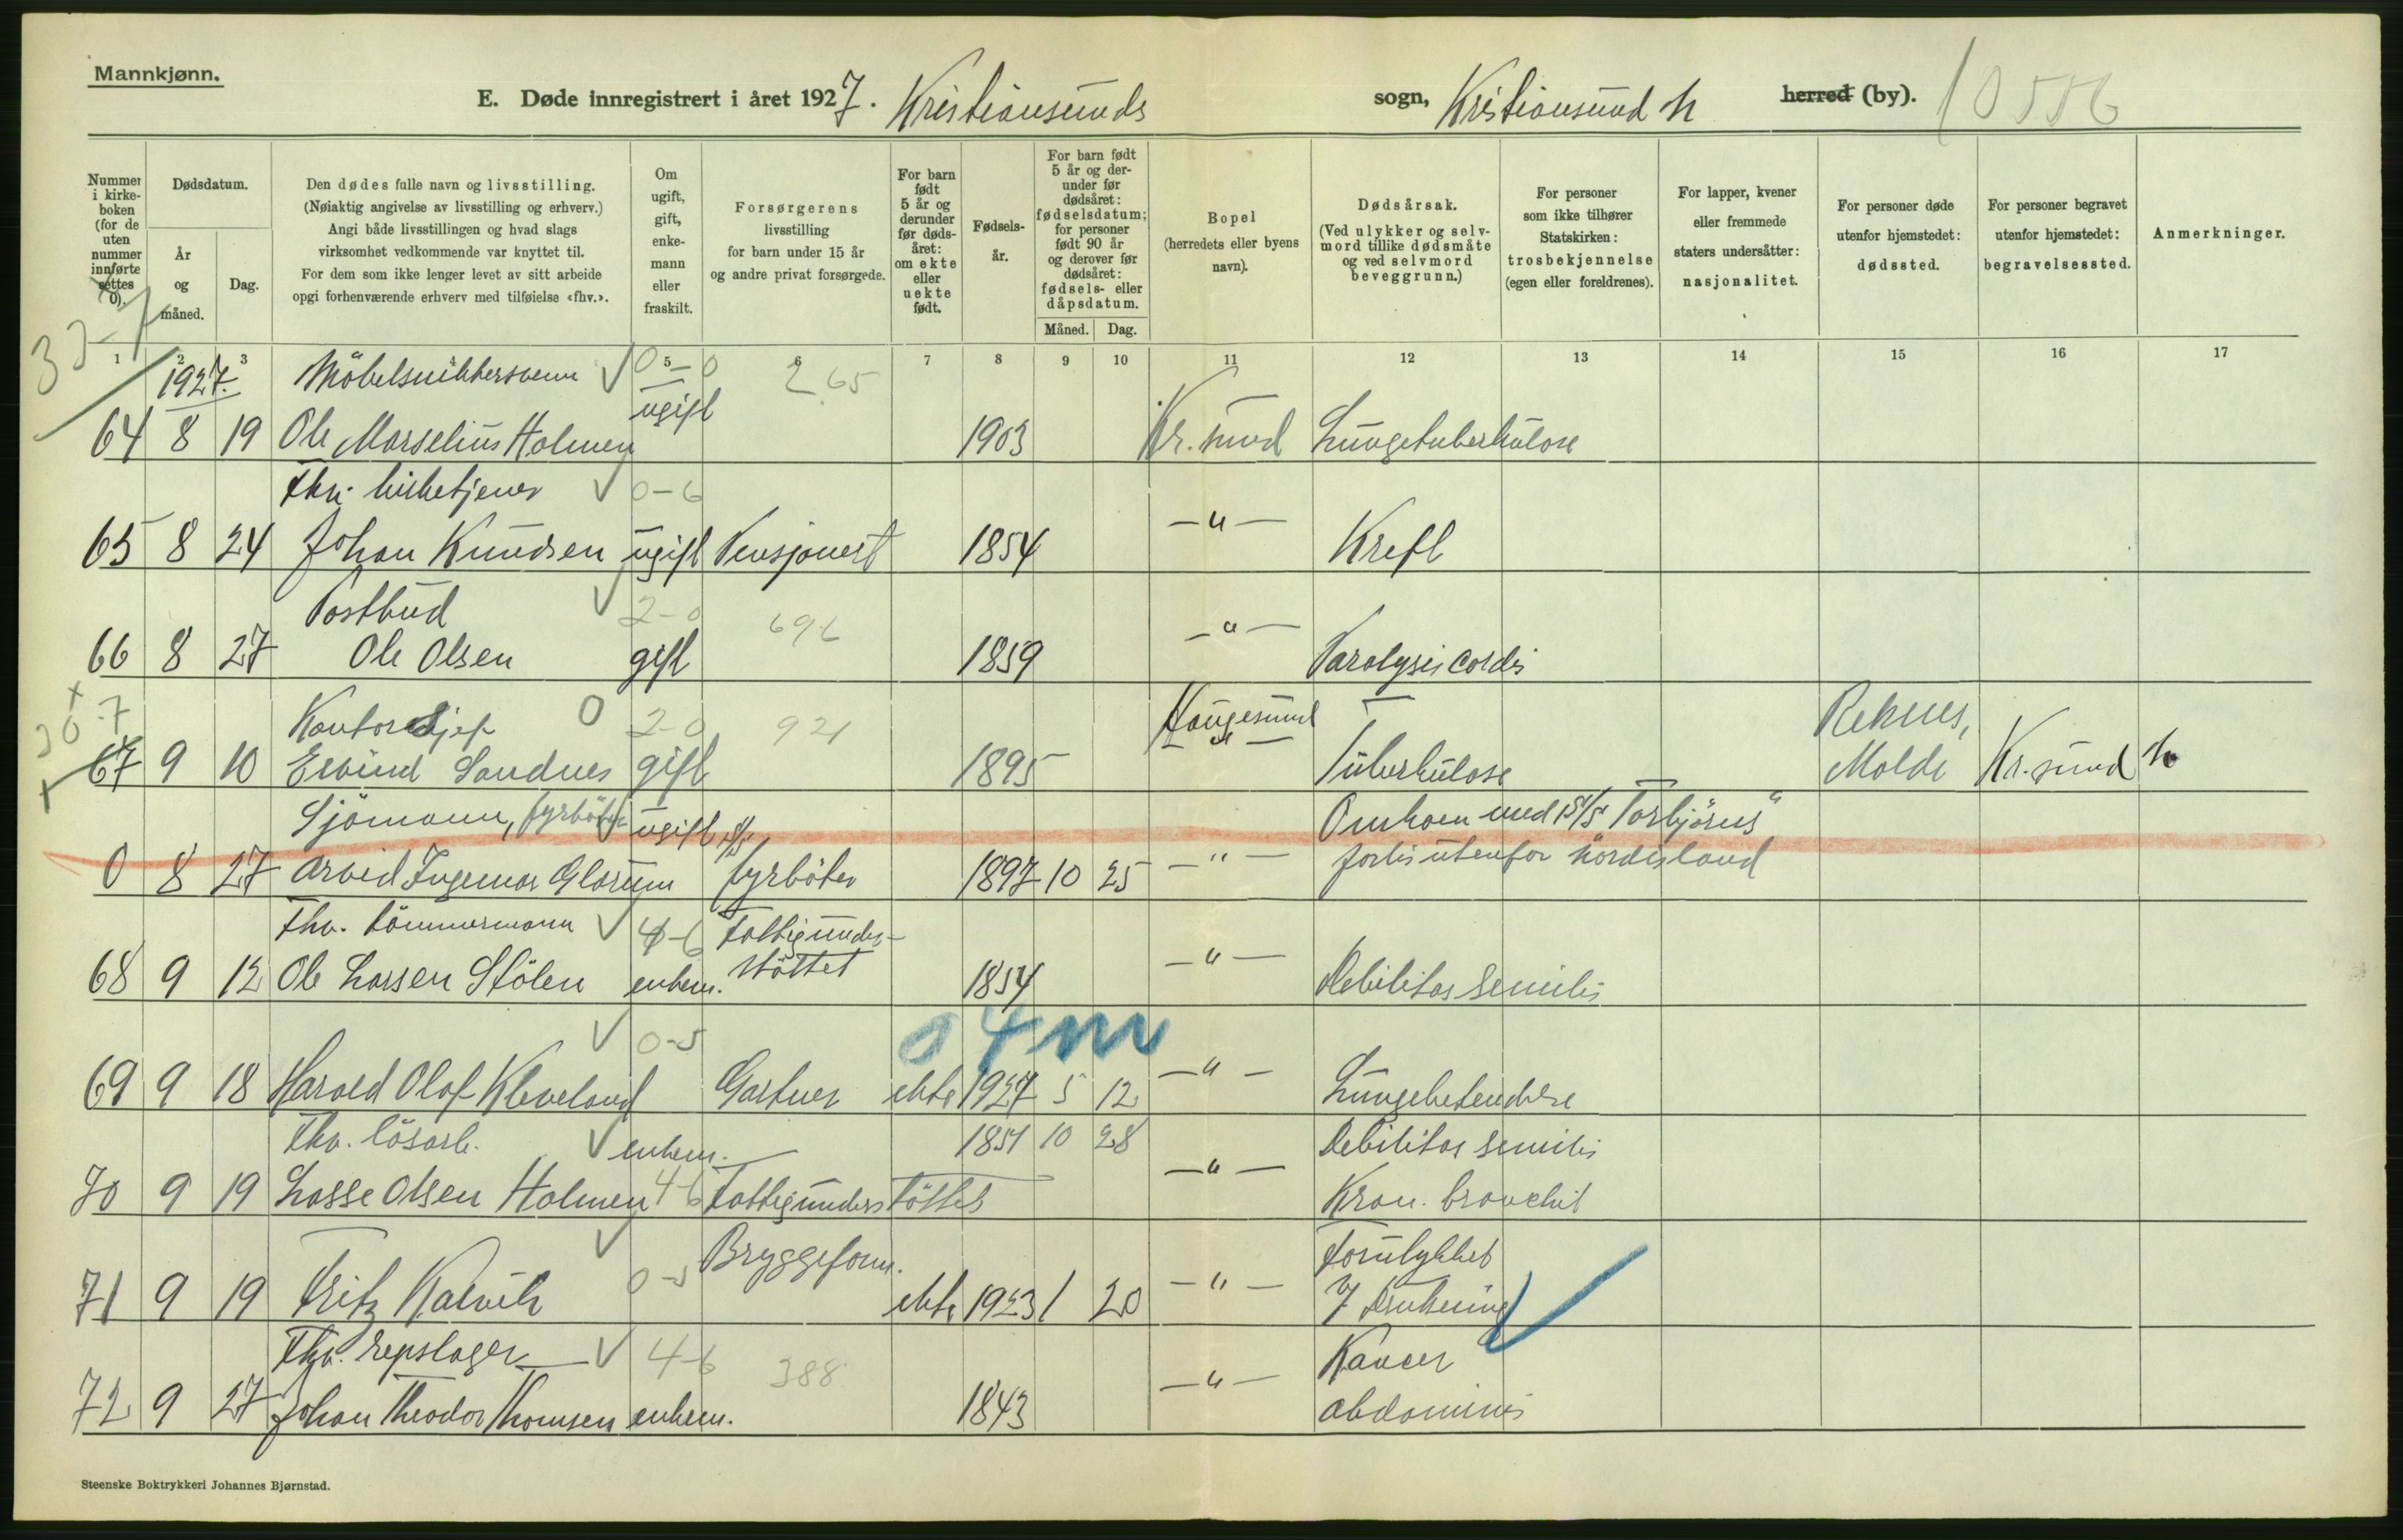 Mannkjønn.
E. Døde innregistrert i året 1927. Kristiansunds sogn, Kristiansund N herred (by). 10556
Nummer i kirkeboken (for de uten nummer innførte settes 0).
Dødsdatum.
År og måned.
Dag.
Den dødes fulle navn og livsstilling.
(Nøiaktig angivelse av livsstilling og erhverv.)
Angi både livsstillingen og hvad slags
virksomhet vedkommende var knyttet til.
For dem som ikke lenger levet av sitt arbeide
opgi forhenværende erhverv med tilføielse «fhv.».
Om ugift, gift, enkemann eller fraskilt.
Forsørgerens livsstilling for barn under 15 år og andre privat forsørgede.
For barn født 5 år og derunder før dødsåret: om ekte eller uekte født.
Fødselsår.
For barn født 5 år og derunder før dødsåret: fødselsdatum; for personer født 90 år og derover før dødsåret: fødsels- eller dåpsdatum.
Måned. Dag.
Bopel (herredets eller byens navn).
Dødsårsak.
(Ved ulykker og selvmord tillike dødsmåte og ved selvmord beveggrunn.)
For personer som ikke tilhører Statskirken: trosbekjennelse (egen eller foreldrenes).
For lapper, kvener eller fremmede staters undersåtter: nasjonalitet.
For personer døde utenfor hjemstedet: dødssted.
For personer begravet utenfor hjemstedet: begravelsessted.
Anmerkninger.
1 2 3 4 5 6 7 8 9 10 11 12 13 14 15 16 17
1927. Möbelsnikkersvenn 0-0 265
64 8 19 Ole Marselius Holmen ugift 1903 Kr.sund Lungetuberkulose
Fhv. kirketjener 0-6
65 8 24 Johan Knudsen ugift Pensjonert 1854 -"- Kreft
Postbud 2-0 696
66 8 27 Ole Olsen gift 1859 -"- Paralysis cordis
Kontorsjef 0 2-0 921 Haugesund Reknes,
67 9 10 Eivind Sandnes gift 1895 -"- Tuberkulose Molde Kr.sund N
Sjömann, fyrböter ugift Omkom med S/S "Torbjörns"
0 8 27 Arvid Ingemar Glærum fyrböter 1897 10 25 -"- forlis utenfor Nordisland
Fhv. tömmermann 4-6 Fattigunder-
68 9 12 Ole Larsen Stölen enkem. støttet 1854 -"- Debilitas senilis
0-5 0 4 m
69 9 18 Harald Olaf Kleveland Gartner ekte 1927 5 12 -"- Lungebetendelse
Fhv. lösarb. enkem. 1851 10 28 Debilitas senilis
70 9 19 Lasse Olsen Holmen 4-6 Fattigunderstöttet -"- Kron. bronchit
Bryggeform. Forulykket
71 9 19 Fritz Kalvik 0-5 ekte 1923 1 20 -"- Drukning
Fhv. repslager 4-6 388 Kancer
72 9 27 Johan Theodor Thomsen enkem. 1843 -"- abdominis
Steenske Boktrykkeri Johannes Bjørnstad.